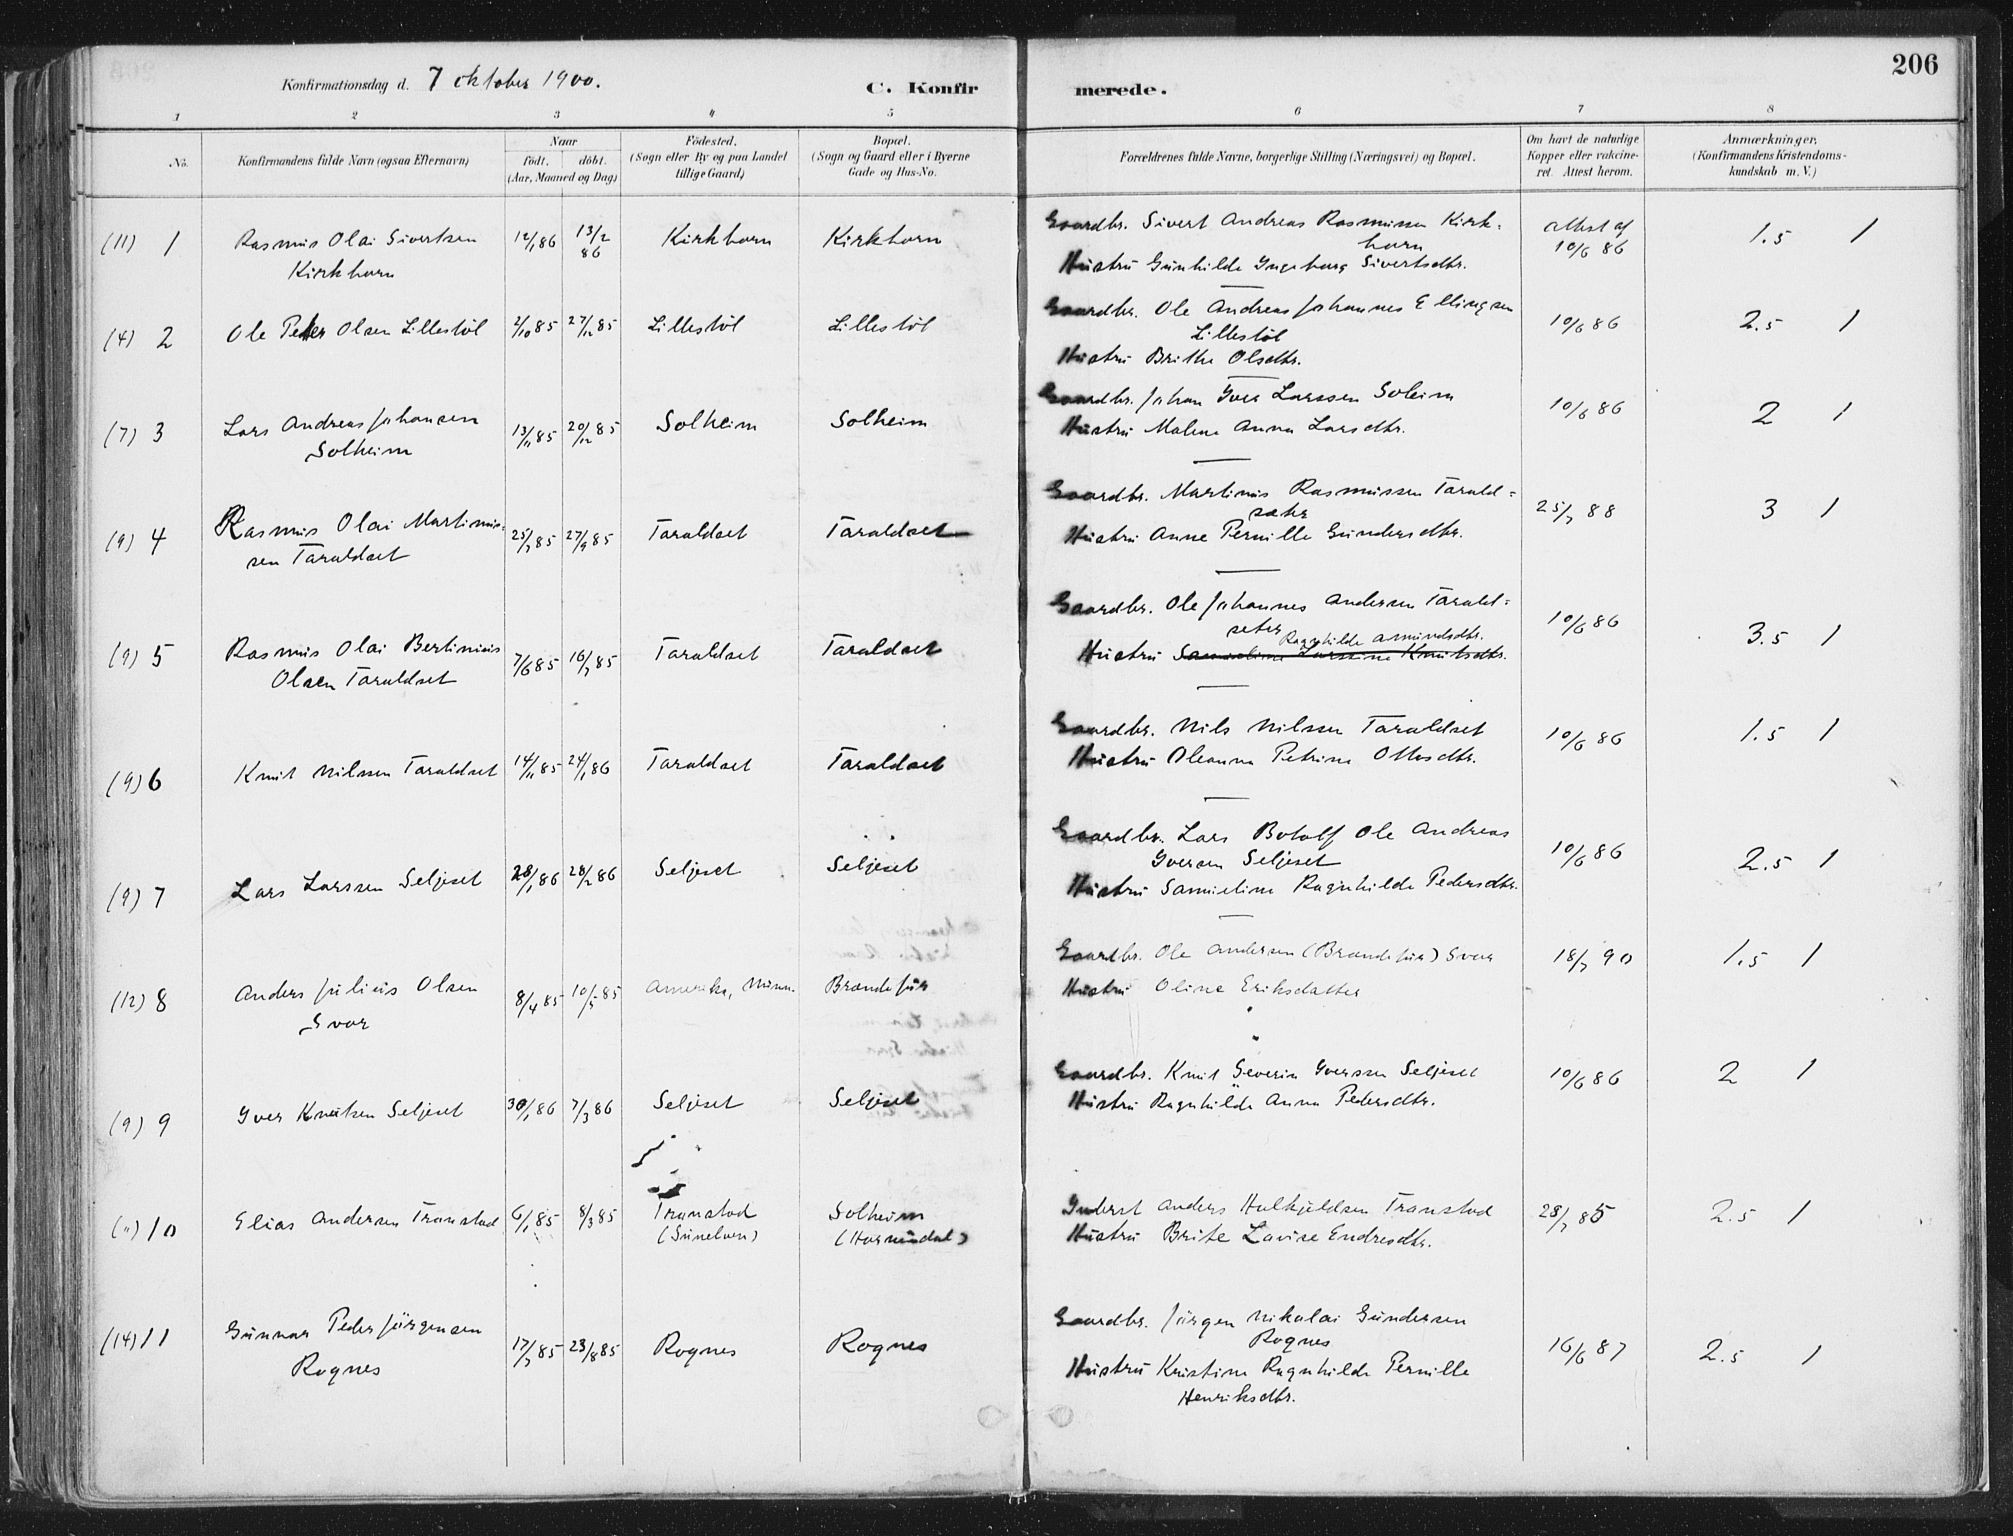 206
Konfirmationsdag d. 7 oktober 1900.
C. Konfirmerede.
1 2 3 4 5 6 7 8
No.
Konfirmandens fulde Navn (ogsaa Efternavn)
Naar
födt. döbt.
(Aar, Maaned og Dag)
Födested.
(Sogn eller By og paa Landet
tillige Gaard)
Bopæl.
(Sogn og Gaard eller i Byerne
Gade og Hus-No.
Forældrenes fulde Navne, borgerlige Stilling (Næringsvei) og Bopæl.
Om havt de naturlige
Kopper eller vakcine-
ret. Attest herom.
Anmærkninger.
(Konfirmandens Kristendoms-
kundskab m. V.)
(11) 1 Rasmus Olai Sivertsen 12/1 86 13/2 86 Kirkhorn Kirkhorn
Kirkhorn
Gaardbr. Sivert Andreas Rasmussen Kirk-
horn
Hustru Gunhilde Ingeborg Sivertsdtr.
attest af
10/6 86 1.5 1
(4) 2 Ole Peder Olsen Lillestöl 2/10 85 27/12 85 Lillestöl Lillestöl
Gaardbr. Ole Andreas Johannes Ellingsen
Lillestöl
Hustru Brithe Olsdtr.
10/6 86 2.5 1
(7) 3 Lars Andreas Johansen 13/11 85 20/12 85 Solheim Solheim
Solheim
Gaardbr. Johan Iver Larssen Soleim
Hustru Malene Anna Larsdtr.
10/6 86 2 1
(9) 4 Rasmus Olai Martinus- 25/7 85 27/9 85 Taraldset Taraldset
sen Taraldset
Gaardbr. Martinus Rasmussen Tarald-
sæter
Hustru Anne Pernille Gundersdtr.
25/7 88 3 1
(9) 5 Rasmus Olai Bertinius 7/6 85 16/7 85 Taraldset Taraldset
Olsen Taraldset
Gaardbr. Ole Johannes Andersen Tarald-
seter
Ragnhilde Amundsdtr.
Hustru Samueline Larsine Knutsdtr.
10/6 86 3.5 1
(9) 6 Knut Nilssen Taraldset 14/11 85 24/1 86 Taraldset Taraldset
Gaardbr. Nils Nilssen Taraldset
Hustru Oleanna Petrine Ottosdtr.
10/6 86 1.5 1
(9) 7 Lars Larssen Seljeset 28/1 86 28/2 86 Seljeset Seljeset
Gaardbr. Lars Botolf Ole Andreas
Iversen Seljeset
Hustru Samueline Ragnhilde Pedersdtr.
10/6 86 2.5 1
(12) 8 Anders Julius Olsen 8/4 85 10/5 85 Amerika, Minn. Brandefur
Svor
Gaardbr. Ole Andersen (Brandefur) Svor
Hustru Oline Eriksdatter
18/7 90 1.5 1
(9) 9 Iver Knutsen Seljeset 30/1 86 7/3 86 Seljeset Seljeset
Gaardbr. Knut Severin Iverssen Seljeset
Hustru Ragnhilde Anna Pedersdtr.
10/6 86 2 1
(") 10 Elias Andersen Tronstad 6/1 85 8/3 85 Tronstad Solheim
(Sunelven) (Hornindal)
Inderst Anders Halkjeldsen Transtad
Hustru Brite Lavise Endresdtr.
28/7 85 2.5 1
(14) 11 Gunnar Peder Jörgensen 17/7 85 23/8 85 Rognes Rognes
Rognes
Gaardbr. Jörgen Nikolai Gundersen
Rognes
Hustru Kristine Ragnhilde Pernille
Henriksdtr.
16/6 87 2.5 1